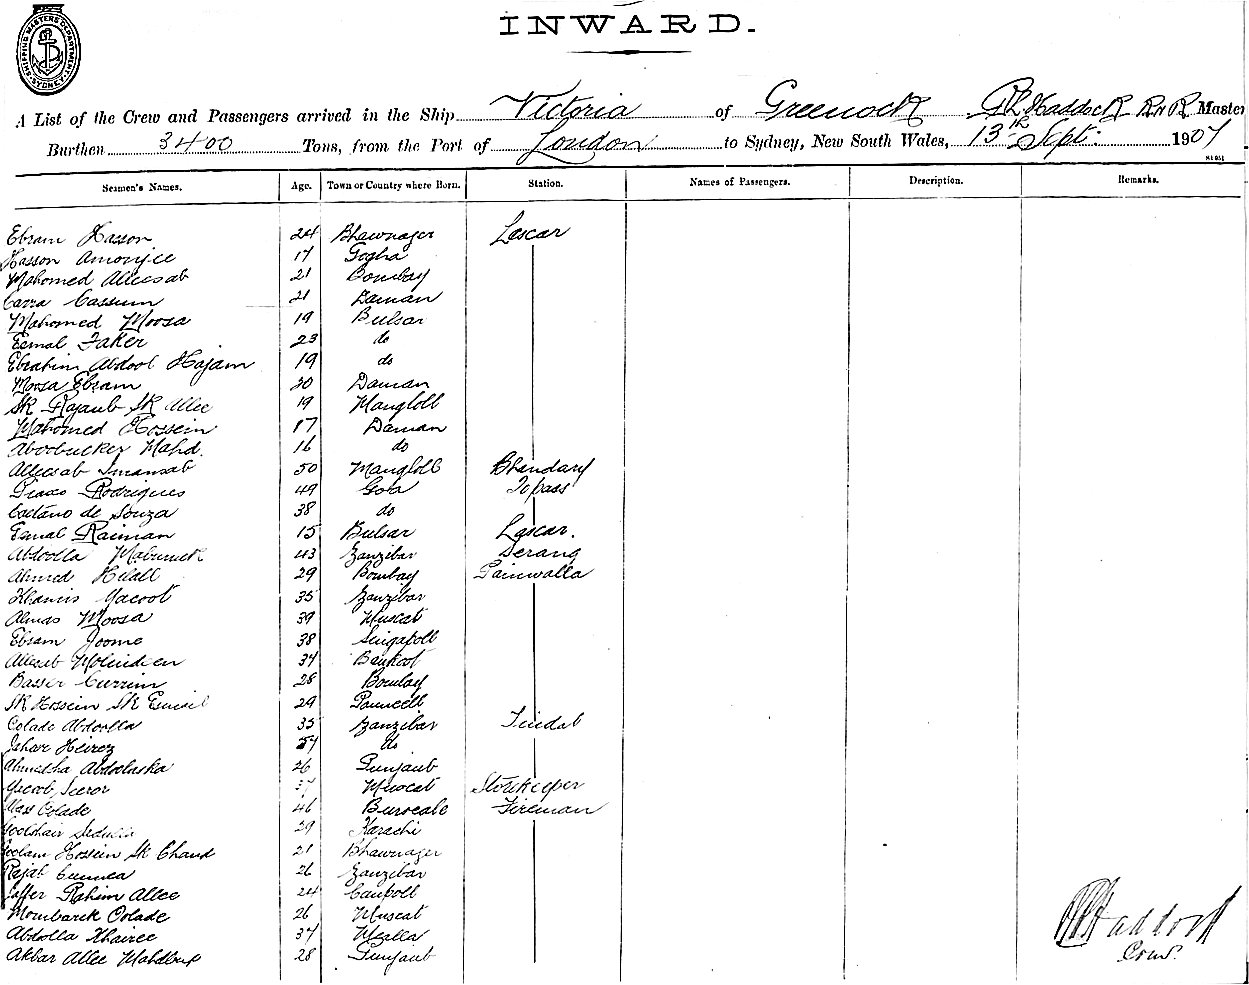 SHIPPING MASTERS DEPARTMENT SYDNEY
INWARD.
A List of the Crew and Passengers arrived in the Ship Victoria of Greenock R. Haddock RNR Master
Burthen 3400 Tons, from the Port of London to Sydney, New South Wales, 13th Sept: 1907
Seamen's Names. Age. Town or Country where Born. Station. Names of Passengers. Description. Remarks.
Ebram Hasson 24 Bhawnager Lascar
Hasson Amonjee 17 Gogha
Mahomed Alleesab 21 Bombay
Carra Cassum 21 Daman
Mahomed Moosa 19 Bulsar
Esmal Faker 23 do
Ebrahim Abdool Hajam 19 do
Moosa Ebram 20 Daman
Sk Rajaub Sk Allee 19 Mangloll
Mahomed Hossein 17 Daman
Aboobucker Mahd. 16 do
Alleesab Imamsab 50 Mangloll Bhandary
Rodrigues 49 Goa Topass
Caetano de Souza 38 do
Esmal Raiman 15 Bulsar Lascar.
Abdoolla Mabrurck 43 Zanzibar Serang
Ahmed Hilall 29 Bombay Paniwalla
Khamis Yacoot 35 Zanzibar
Almas Moosa 39 Muscat
Ebram Jooma 38 Singapoll
Allesab Mohideen 34 Bankcot
Basser Currim 28 Bombay
Sk Hossein Sk Esmail 29
Colade Abdoolla 35 Zanzibar Tindal
Heirez do
Ahmedha Abdoolaska 26 Punjaub
Yacoob Seeror 37 Muscat Storekeeper
Mass Colade 46 Fireman
29 Karachi
Goolam Hossein Sk Chand 21 Bhawnager
Rajab Cumma 26 Zanzibar
Jaffer Rahim Allee 24
Mombarek Colade 26 Muscat
Abdoolla Khairee 34
Akbar Allee Mahdbux 28 Punjaub
R Haddock
Com'r.